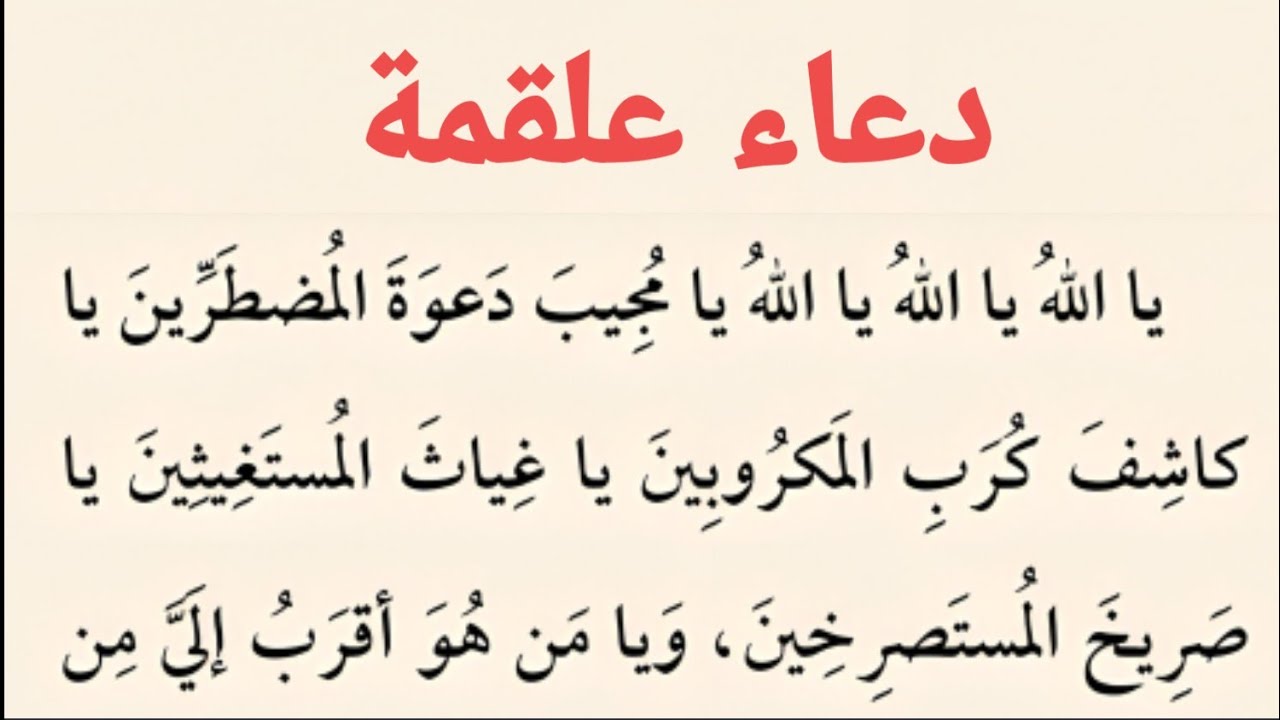 دعاء علقمة
يا اللهُ يا اللهُ يا اللهُ يا مُجِيبَ دَعوَةَ المُضطَرِّينَ يا
كاشِفَ كُرَبِ المَكرُوبِينَ يا غِياثَ المُستَغِيثِينَ يا
صَرِيخَ المُستَصرِخِينَ، وَيا مَن هُوَ أقرَبُ إلَيَّ مِن